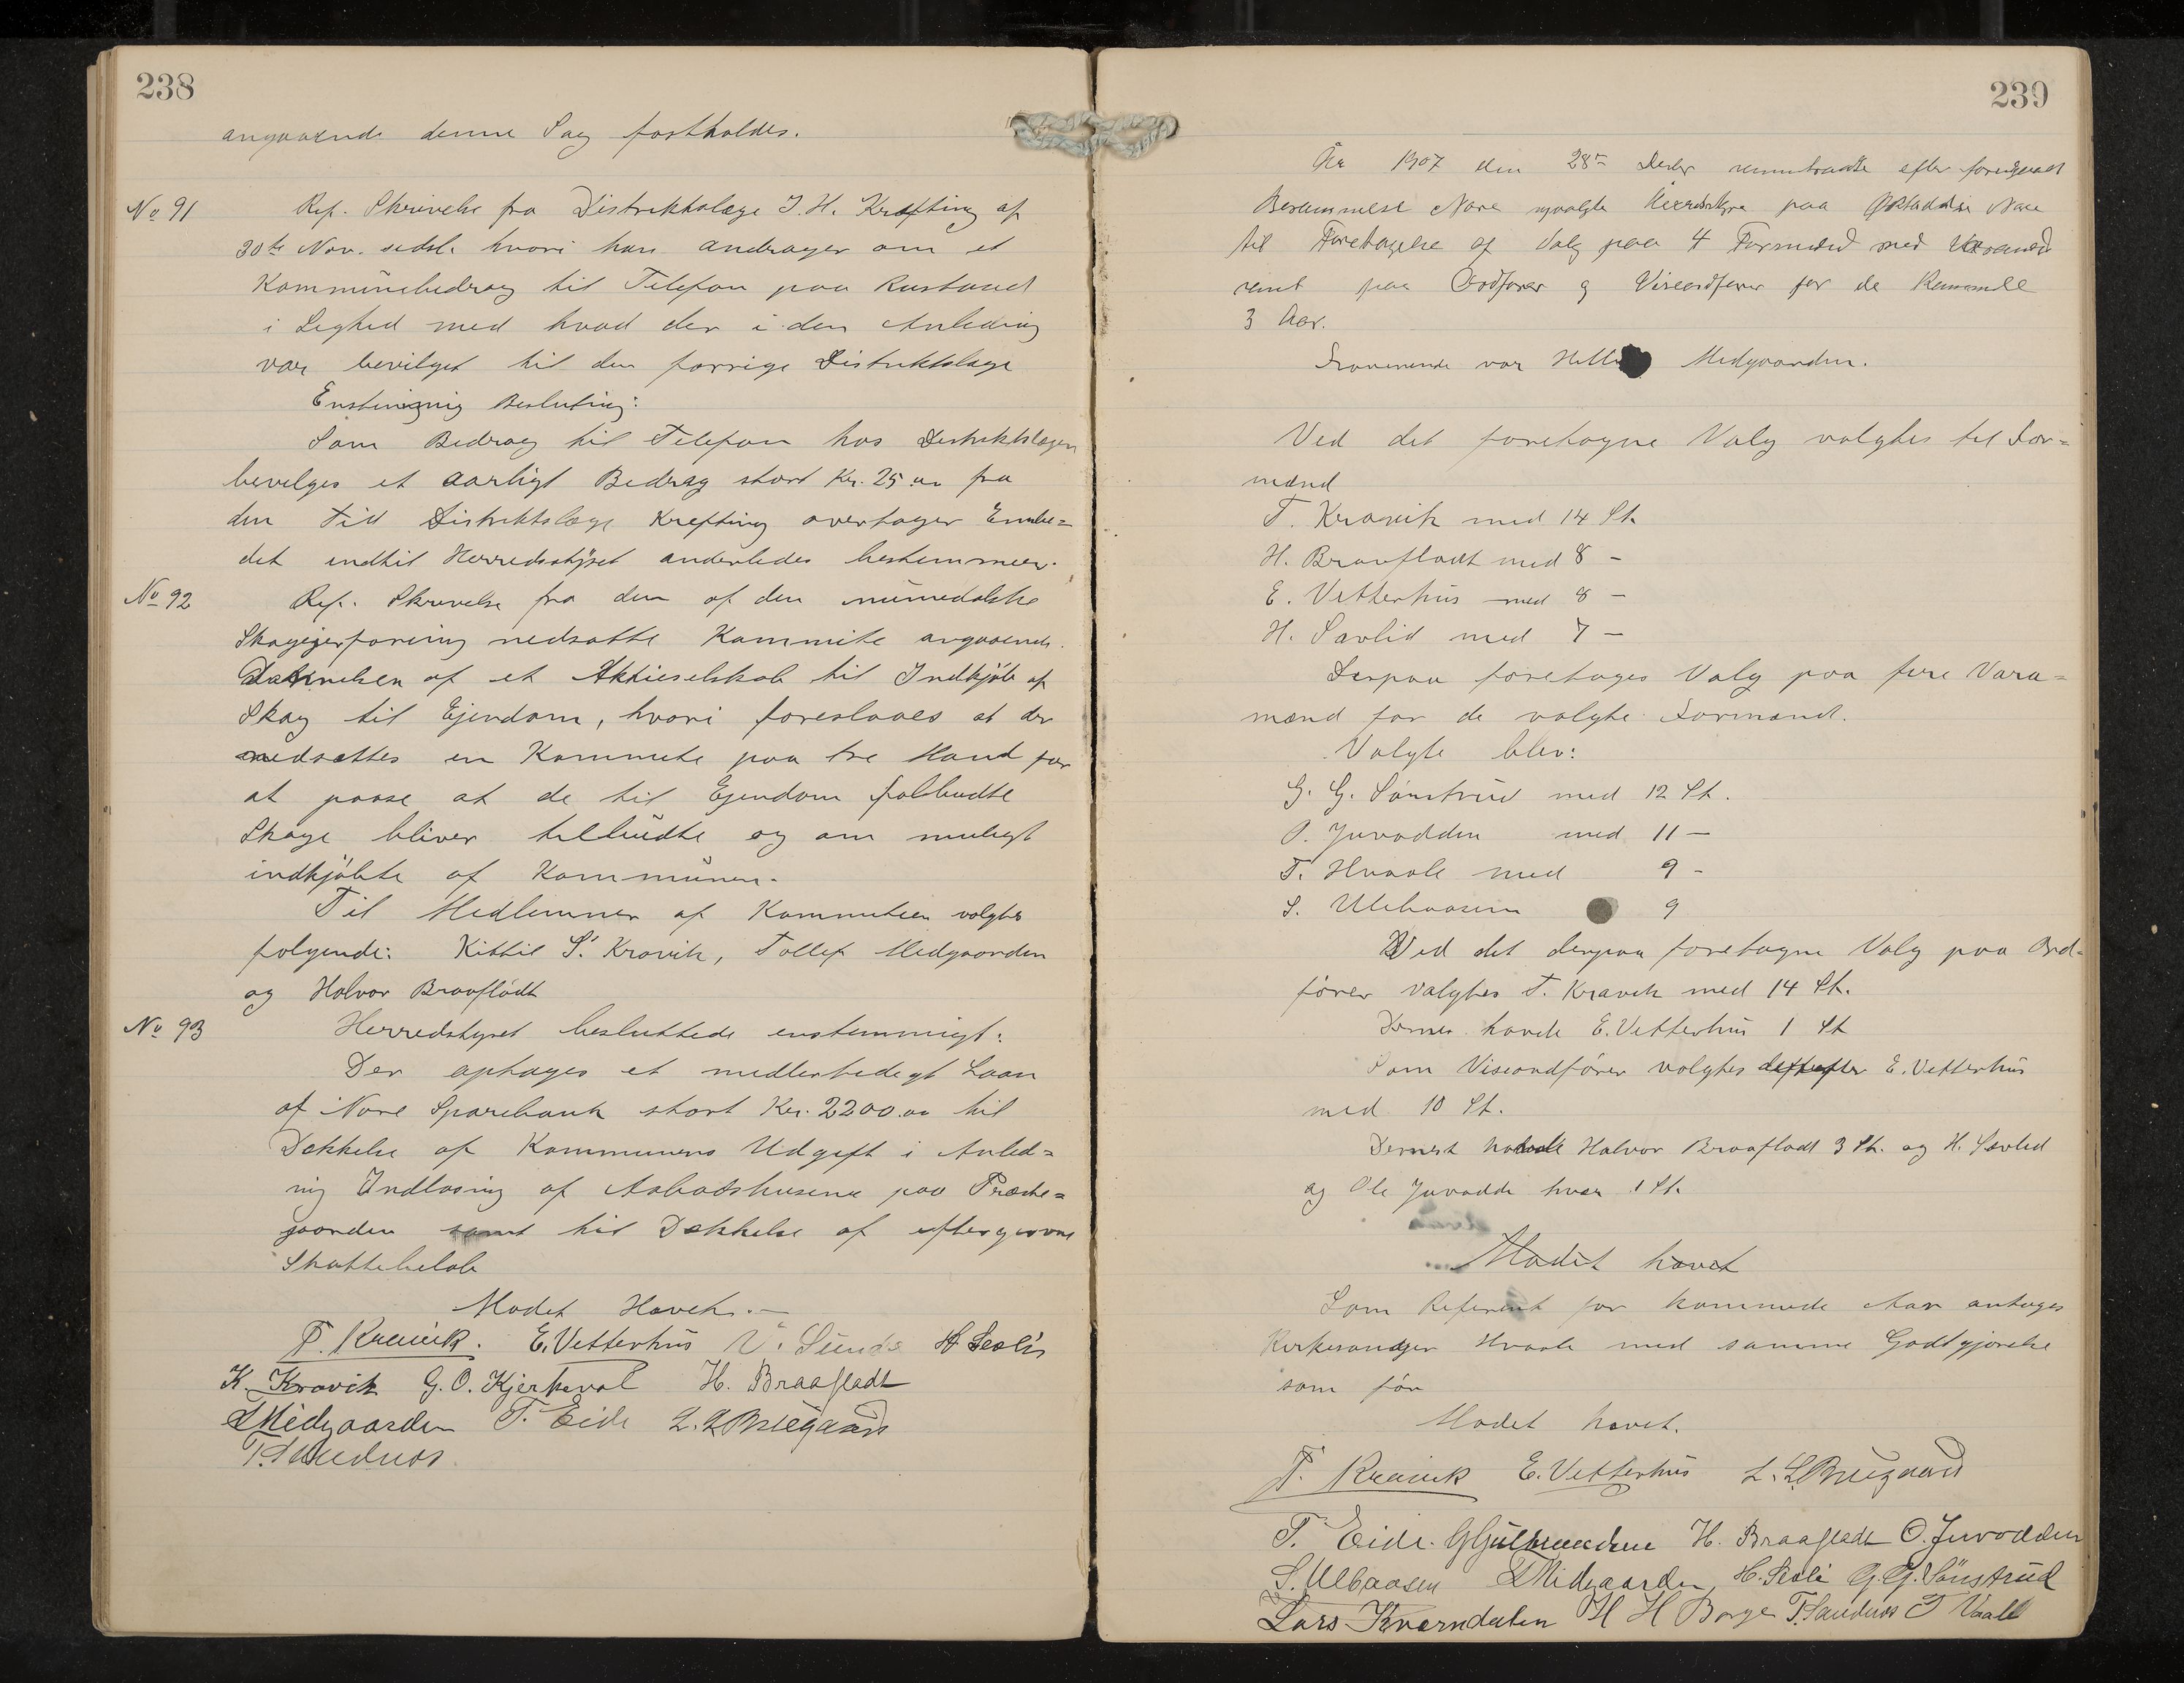 238
angaaende denne Sag fastholdes.
No 91 Ref. Skrivelse fra Distriktslæge J. H. Krefting af
30te Nov. sidste hvori han andrager om et
Kommunebidrag til Telefon paa Rustand
i Lighed med hvad der i den Anledning
var bevilget til den forrige Distriktslæge
Enstemmig Beslutning:
Som Bidrag til Telefon hos Distriktslægen
bevilges et aarligt Bidrag stort Kr. 25.00 fra
den Tid Distriktslæge Krefting overtager Embe=
det indtil Herredsstyret anderledes bestemmer.
No 92 Ref. Skrivelse fra den af den numedalske
Skogeierforening nedsatte Kommite angaaende
Dannelsen af et Aktieselskab til Indkjöb af
Skog til Ejendom, hvori foreslaaes at der
nedsættes en Kommite paa tre Mand for
at paase at de til Ejendom falbudte
Skoge bliver tilbudte og om muligt
indkjöbte af Kommunen.
Til Medlemmer af Kommiteen valgtes
følgende: Kittil S. Kravik, Tollef Medgaarden
og Halvor Braaflodt
No 93 Herredstyret besluttede enstemmigt:
Der optages et midlertidigt Laan
af Nore Sparebank stort Kr. 2200.00 til
Dekkelse af Kommunens Udgift i Anled=
ning Indløsning af Aabodshusene paa Præste=
gaarden samt til Dækkelse af eftergivne
Skattebeløb
Mødet Hævet.—
T. Kravik. E. Vetterhus V. Sunde H. Seoli
K. Kravik G. O. Kjerkevol H. Braaflodt
T Midgaarden T. Eide L. L Bruggaard
T. Sandnos
239
Aar 1907 den 28de Decbr sammentraadte efter foregaaet
Berammelse Nore nyvalgte Herredsstyre paa Nore
til Foretagelse af Valg paa 4 Formænd med Varamænd
samt paa Ordfører og Viseordfører for de Kommende
3 Aar.
Fraværende var Medgaarden.
Ved det foretagne Valg valgtes til For=
mænd
T. Kravik med 14 St.
H. Braaflodt med 8 -
E. Vetterhus med 8 -
H. Søvlid med 7 -
Derpaa foretoges Valg paa fire Vara=
mænd for de valgte Formænd.
Valgte blev:
G. G. Sønstrud med 12 St.
O. Juvodden med 11 -
T. Hvaale med 9 -
S. Ulebaasen 9
Ved det derpaa foretagne Valg paa Ord=
fører valgtes T. Kravik med 14 St.
Dernest havde E. Vetterhus 1 St
Som Viseordfører valgtes derefter E. Vetterhus
med 10 St.
Dernest havde Halvor Braaflodt 3 St. og H. Søvlid
og Ole Juvodden hver 1 St.
Mødet hævet
Som Referent for kommende Aar antages
Kirkesanger Hvaale med samme Godtgjørelse
som før
Mødet hævet.
T. Kravik E. Vetterhus L. L. Bruggaard
T. Eide. G Gulbrandsen H. Braaflodt O. Juvodden
S. Ulbaasen T Midgaarden H. Seoli G. G. Sønstrud
Lars Kverndalen H H Borge T. Sandnos T Vaale